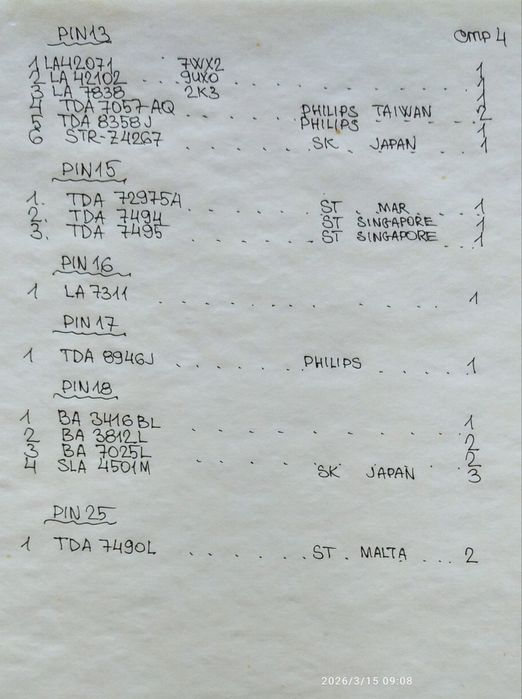 PIN13 стр 4
1 LA42071 7WX2 1
2 LA 42102 . . . 9UX0 . . . . . . . . 1
3 LA 7838 2K3 1
4 TDA 7057 AQ PHILIPS TAIWAN 2
5 TDA 8358J . . . . . PHILIPS . . . 1
6 STR-Z4267 . . . . . . SK JAPAN . . . 1
PIN15
1. TDA 7297SA . . . . . ST . MAR . . . 1
2. TDA 7494 ST SINGAPORE 1
3. TDA 7495 . . . . . ST SINGAPORE . . 1
PIN16
1 LA 7311 . . . . . . . . . . . 1
PIN17
1 TDA 8946J . . . . . . PHILIPS . . . . . 1
PIN18
1 BA 3416BL . . . . . . . . . . 1
2 BA 3812L 2
3 BA 7025L 2
4 SLA 4501M . . . . . . SK JAPAN 3
PIN25
1 TDA 7490L . . . . . . ST . MALTA . . . 2
2026/3/15 09:08